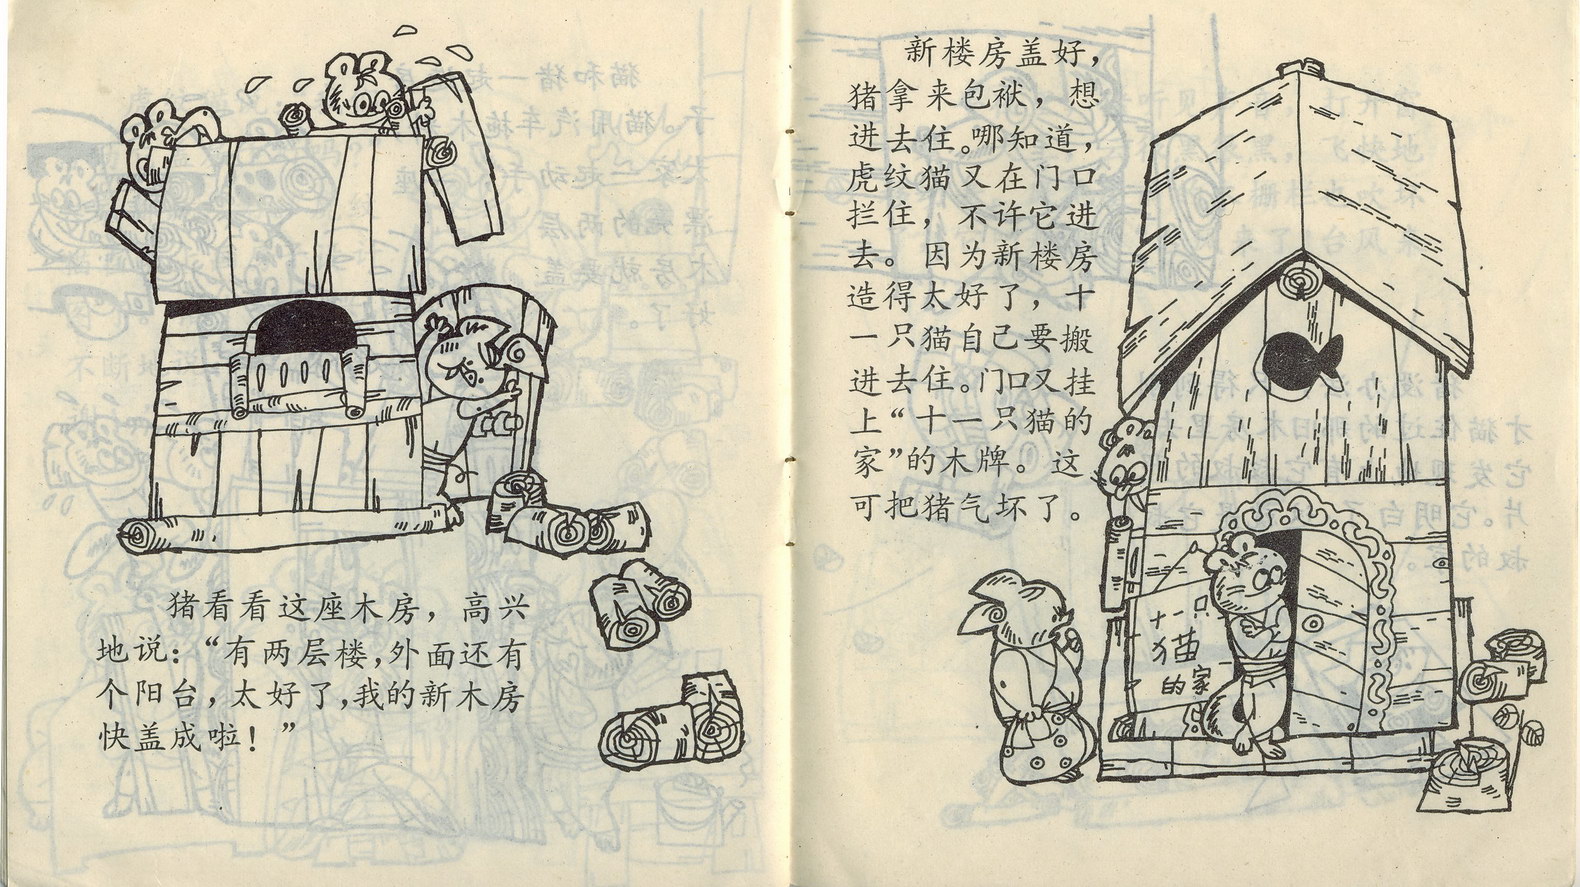 猪看看这座木房，高兴
地说：“有两层楼，外面还有
个阳台，太好了，我的新木房
快盖成啦！”
新楼房盖好，
猪拿来包袱，想
进去住。哪知道，
虎纹猫又在门口
拦住，不许它进
去。因为新楼房
造得太好了，十
一只猫自己要搬
进去住。门口又挂
上“十一只猫的
家”的木牌。这
可把猪气坏了。
十一只
猫
的家